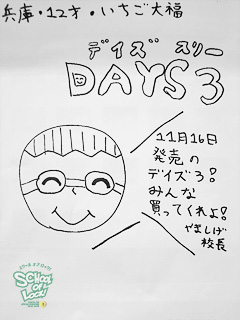 兵庫・12才・いちご大福
デイズ スリー
DAYS 3
11月16日
発売の
デイズ3!
みんな
買ってくれよ!
やましげ
校長
SCHOOL
OF
LOCK!